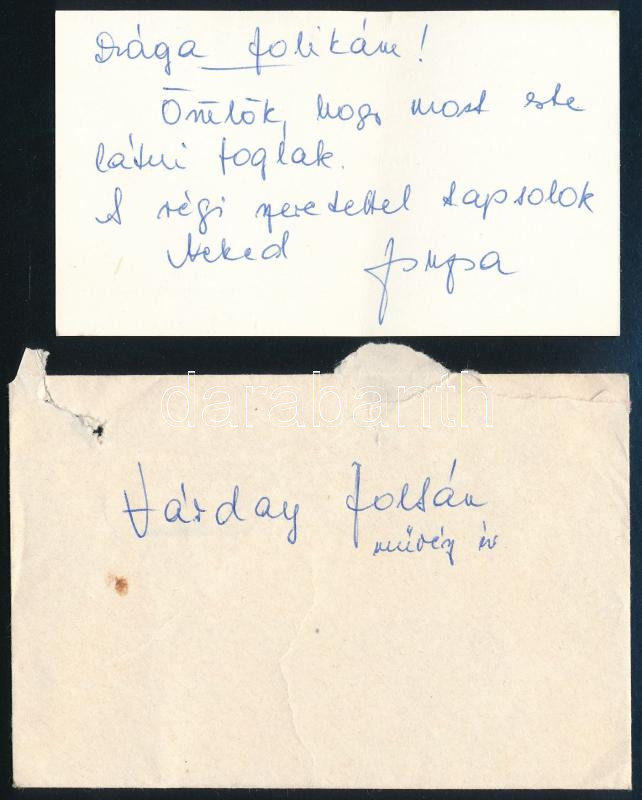 Drága Zolikám!
Örülök, hogy most este
látni foglak.
A régi szeretettel tapsolok
Neked
darabanth
Várday Zoltán
művész úr